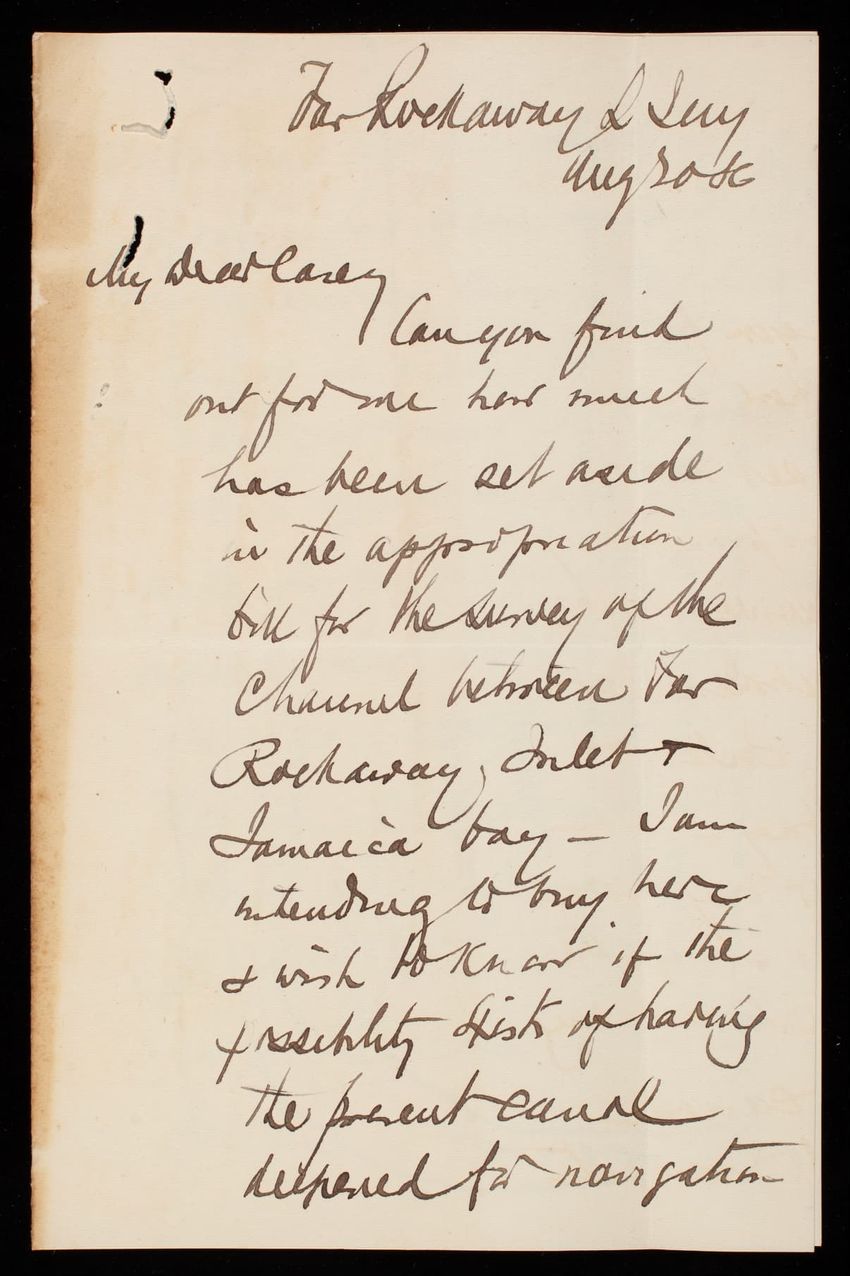 Far Rockaway L I
Aug 20 86
My Dear Casey
Can you find
out for me how much
has been set aside
in the appropriation
bill for the survey of the
Channel between Far
Rockaway Inlet &
Jamaica bay — I am
intending to buy here
& wish to know if the
possibility exists of having
the present canal
deepened for navigation